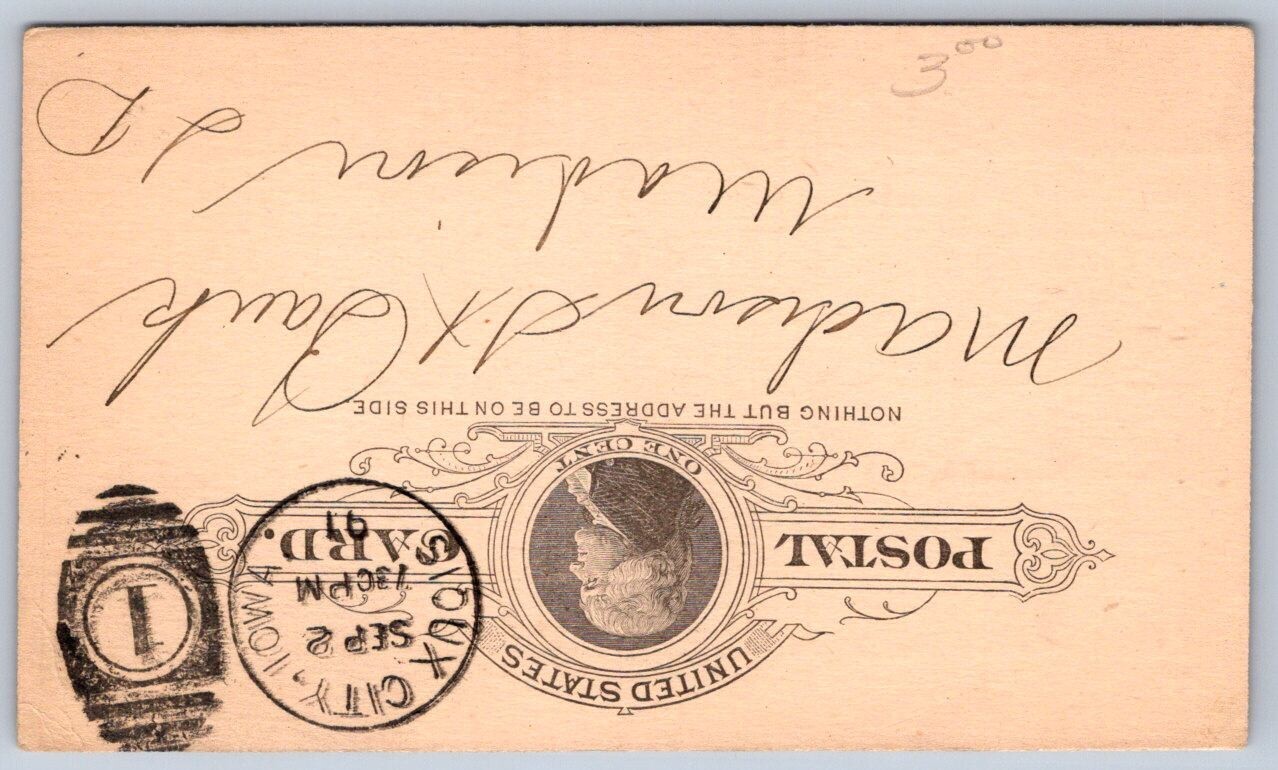 UNITED STATES
POSTAL CARD.
ONE CENT
NOTHING BUT THE ADDRESS TO BE ON THIS SIDE
SIOUX CITY, IOWA
SEP 2
730PM
91
1
Madison St Bank
Madison
S D
3.00